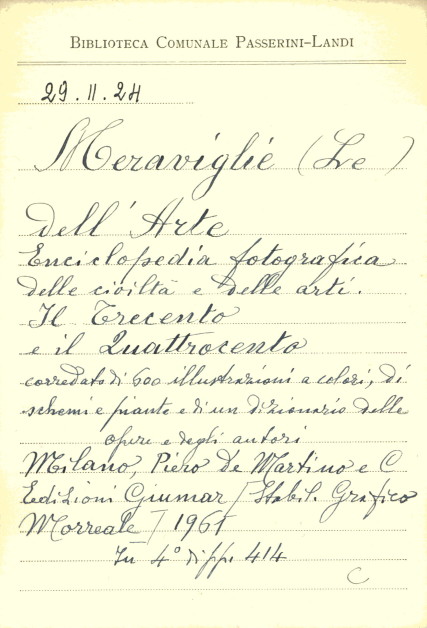 BIBLIOTECA COMUNALE PASSERINI-LANDI
29.11.24
Meraviglie (Le)
dell'Arte
Enciclopedia fotografica
delle civiltà e delle arti.
Il Trecento
e il Quattrocento
corredato di 600 illustrazioni a colori, di
schemi e piante e di un dizionario delle
opere e degli autori
Milano, Piero De Martino e C
Edizioni Giumar [Stabil. Grafico
Morreale] 1961
In 4° di pp. 414
C